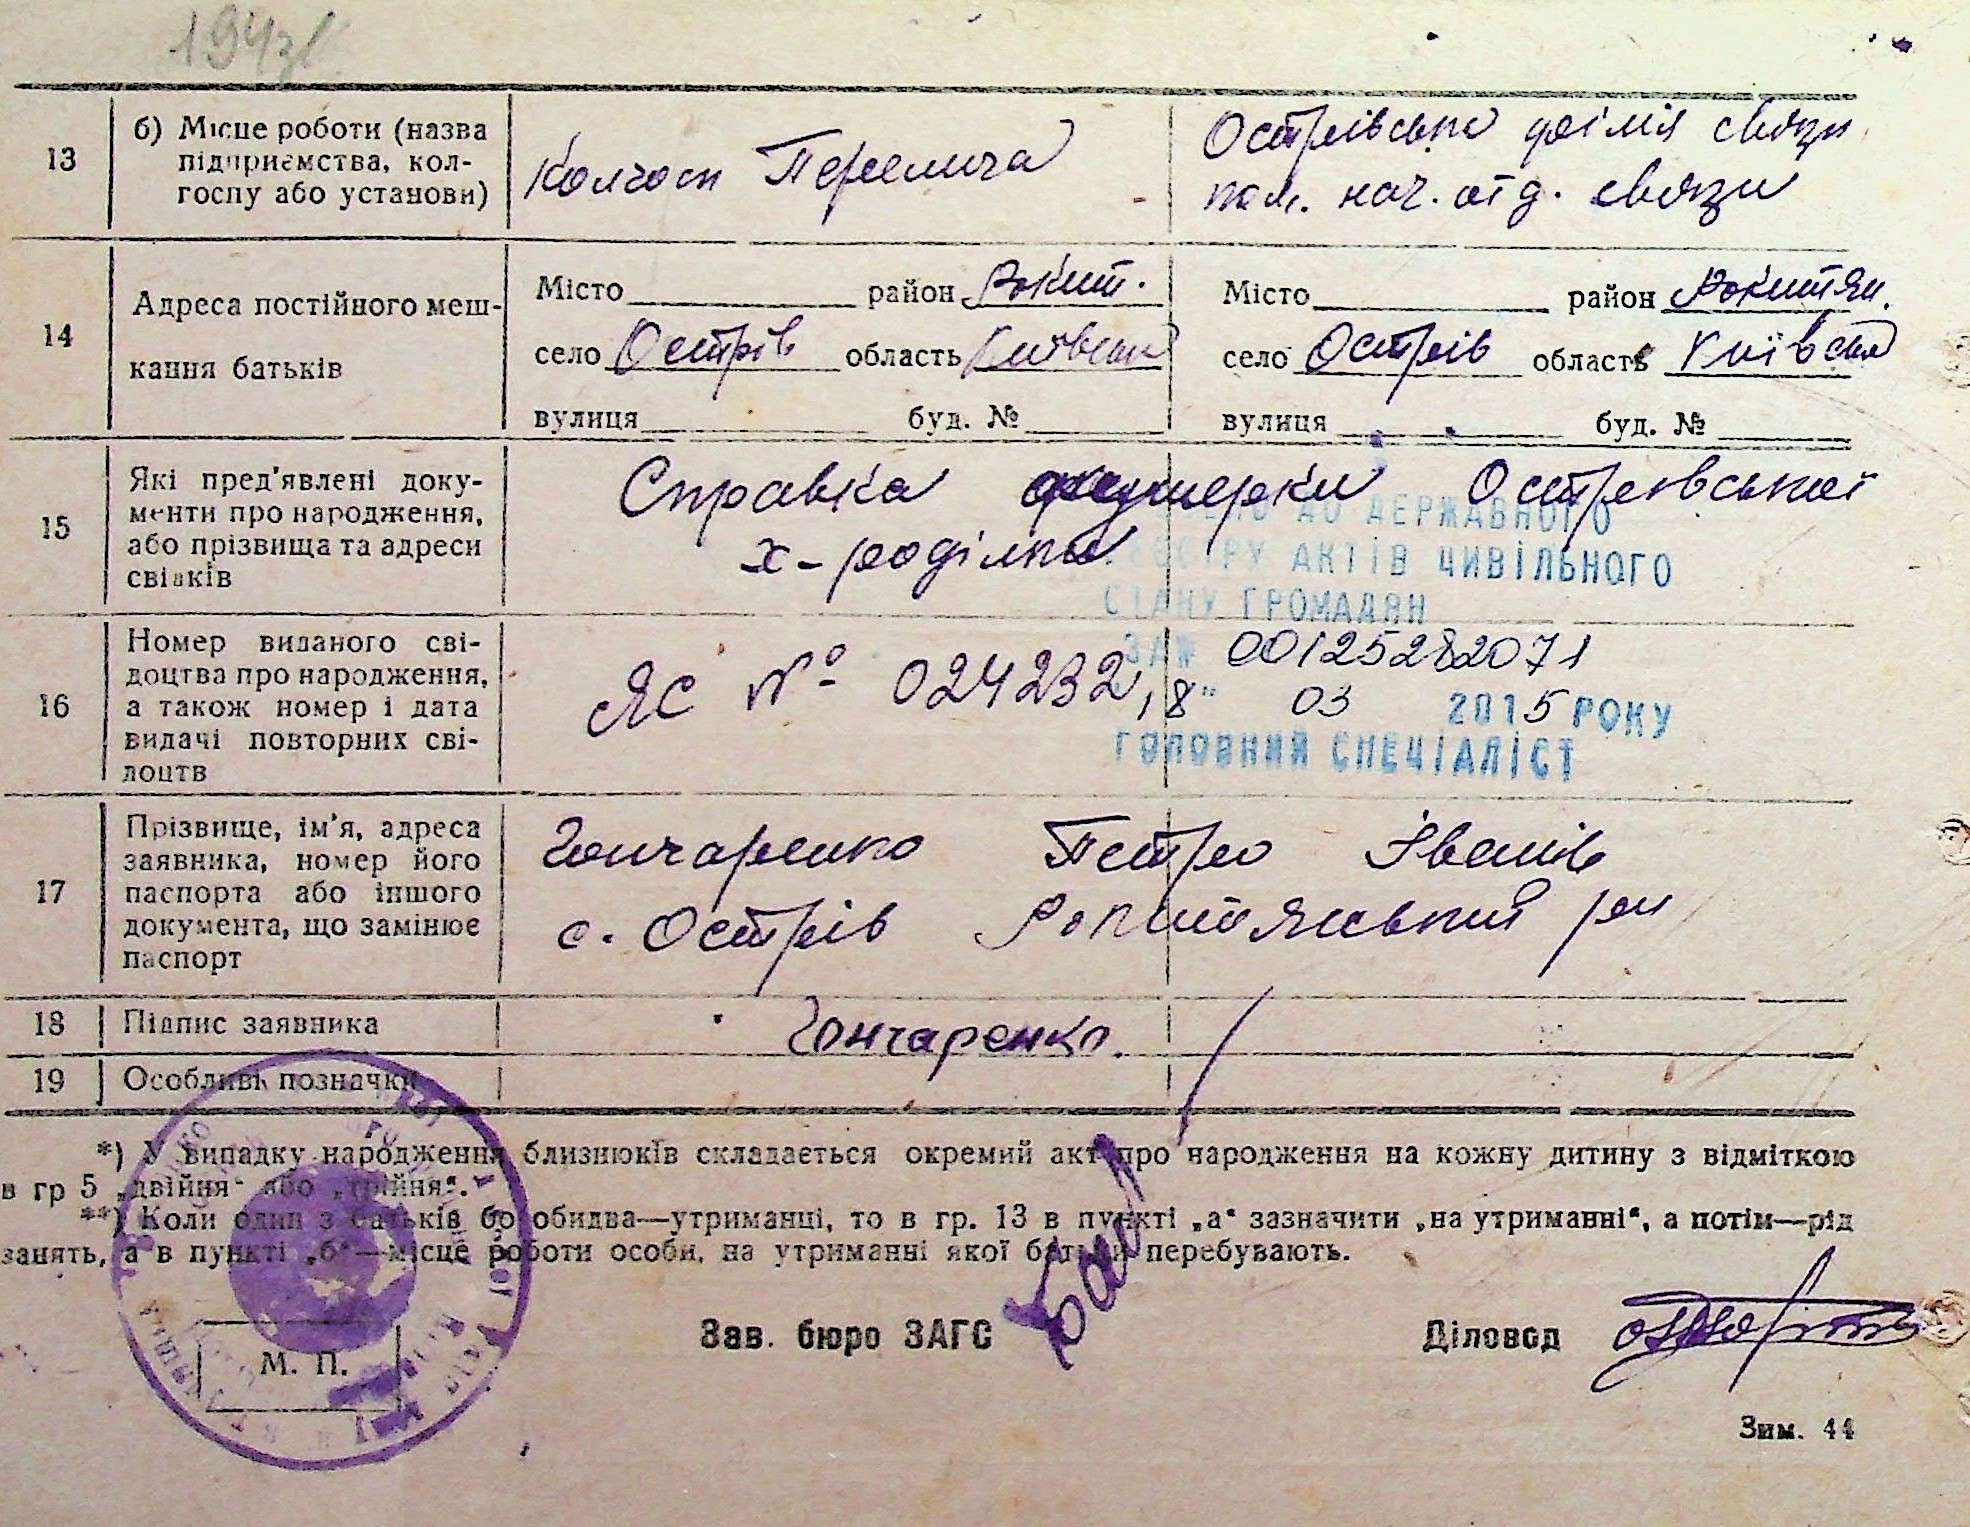 13
б) Місце роботи (назва
підприємства, кол-
госпу або установи)
Колгосп Перемога
Острівське
пом. нач. отд. связи
14
Адреса постійного меш-
кання батьків
Місто район Рокит.
село Острів область Київська
вулиця буд. №
Місто район Рокитян.
село Острів область Київська
вулиця буд. №
15
Які пред'явлені доку-
менти про народження,
або прізвища та адреси
свідків
Справка акушерки Острівської
х-роділки
ДО ДЕРЖАВНОГО
РЕЄСТРУ АКТІВ ЦИВІЛЬНОГО
СТАНУ ГРОМАДЯН
ЗА № 00125282071
„18" 03 2015 РОКУ
ГОЛОВНИЙ СПЕЦІАЛІСТ
16
Номер виданого сві-
доцтва про народження,
а також номер і дата
видачі повторних сві-
доцтв
ЯС № 024232
17
Прізвище, ім'я, адреса
заявника, номер його
паспорта або іншого
документа, що замінює
паспорт
Гончаренко Петро Іванів
с. Острів Рокитянський рн
18
Підпис заявника
Гончаренко.
19
Особливі позначки
*) У випадку народження близнюків складається окремий акт про народження на кожну дитину з відміткою
в гр 5 „двійня" або „трійня".
**) Коли один з батьків бо обидва—утриманці, то в гр. 13 в пункті „а" зазначити „на утриманні", а потім—рід
занять, а в пункті „б"—місце роботи особи, на утриманні якої батьки перебувають.
М. П.
Зав. бюро ЗАГС
Діловод
Зим. 44